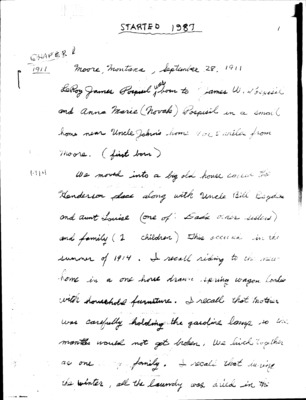 STARTED 1987
1
CHAPTER 1
1911
Moore, Montana, September 28, 1911
LeRoy James Pospisil was born to James W. Pospisil
and Anna Marie (Novak) Pospisil in a small
home near Uncle John's home miles from
Moore. (first born)
We moved into a big old house
Henderson place along with Uncle Bill
and Aunt Louise (one of Dads sisters)
and family (2 children) This in the
summer of 1914. I recall riding to
home in a one horse drawn spring wagon
with household furniture. I recall that Mother
was carefully holding the gasoline lamp so
would not get broken. We lived together
as one family. I recall that during
the winter, all the laundry was dried in the